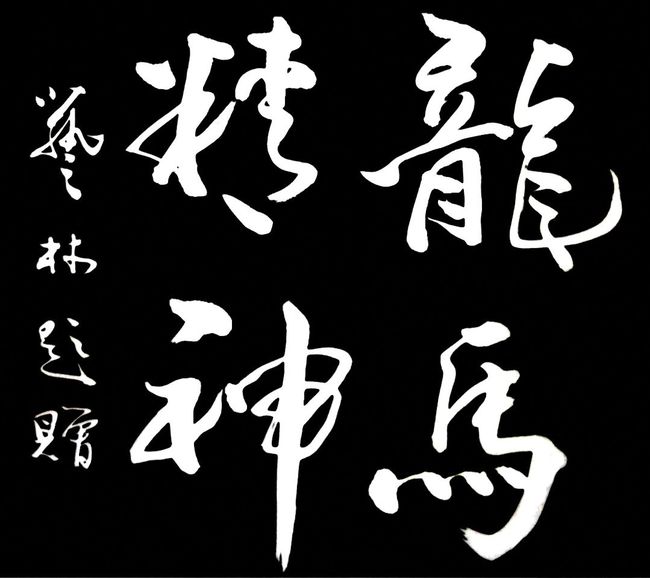 龍馬
精神
藝林題贈